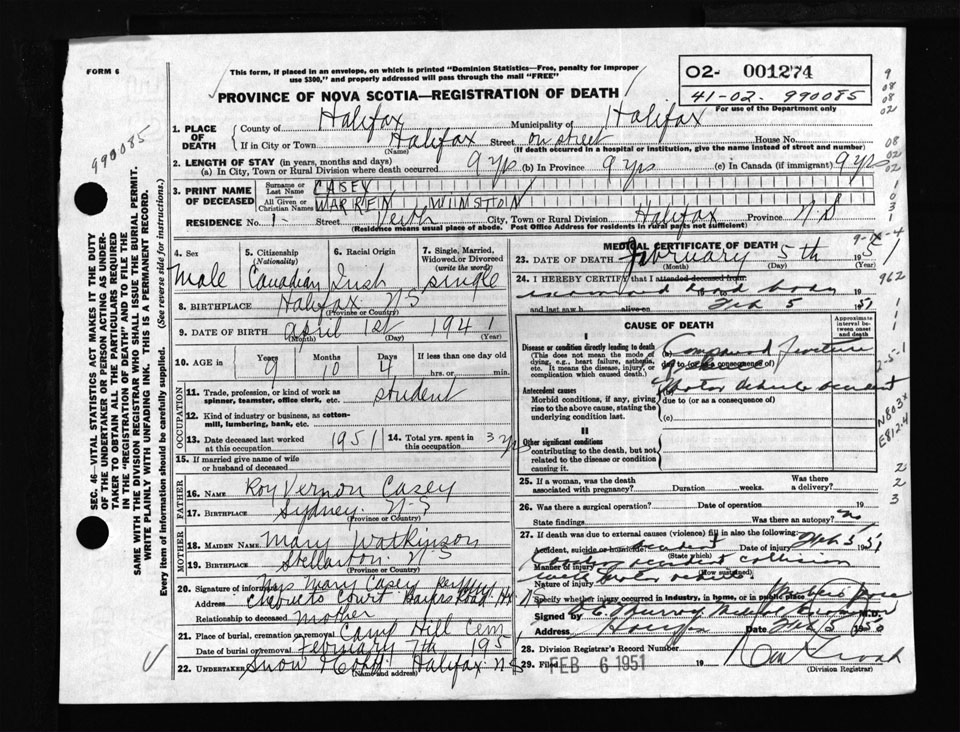 FORM 6
This form, if placed in an envelope, on which is printed "Dominion Statistics—Free, penalty for improper
use $300," and properly addressed will pass through the mail "FREE"
PROVINCE OF NOVA SCOTIA—REGISTRATION OF DEATH
02- 001274
41-02- 990085
For use of the Department only
990085
SEC. 46—VITAL STATISTICS ACT MAKES IT THE DUTY
OF THE UNDERTAKER OR PERSON ACTING AS UNDER-
TAKER TO OBTAIN ALL THE PARTICULARS REQUIRED
IN THE "REGISTRATION OF DEATH" AND TO FILE THE
SAME WITH THE DIVISION REGISTRAR WHO SHALL ISSUE THE BURIAL PERMIT.
WRITE PLAINLY WITH UNFADING INK. THIS IS A PERMANENT RECORD.
Every item of information should be carefully supplied. (See reverse side for instructions.)
1. PLACE OF DEATH County of Halifax Municipality of Halifax
If in City or Town Halifax (Name) Street on street House No.
(If death occurred in a hospital or institution, give the name instead of street and number)
2. LENGTH OF STAY (in years, months and days)
(a) In City, Town or Rural Division where death occurred 9 yrs (b) In Province 9 yrs (c) In Canada (if immigrant) 9 yrs
3. PRINT NAME OF DECEASED Surname or Last Name CASEY
All Given or Christian Names WARREN WINSTON
RESIDENCE No. 1- Street City, Town or Rural Division Halifax Province N S
(Residence means usual place of abode. Post Office Address for residents in rural parts not sufficient)
4. Sex Male
5. Citizenship (Nationality) Canadian
6. Racial Origin Irish
7. Single, Married, Widowed or Divorced (write the word) single
8. BIRTHPLACE Halifax N S
(Province or Country)
9. DATE OF BIRTH April 1st 1941
(Month) (Day) (Year)
10. AGE in Years 9 Months 10 Days 4 If less than one day old
hrs. or min.
OCCUPATION
11. Trade, profession, or kind of work as
spinner, teamster, office clerk, etc. student
12. Kind of industry or business, as cotton-
mill, lumbering, bank, etc.
13. Date deceased last worked at this occupation 1951 14. Total yrs. spent in this occupation 3 yrs
15. If married give name of wife
or husband of deceased
FATHER
16. NAME Roy Vernon Casey
17. BIRTHPLACE Sydney N-S
(Province or Country)
MOTHER
18. MAIDEN NAME Mary Watkinson
19. BIRTHPLACE Stellarton N S
(Province or Country)
20. Signature of informant Mrs Mary Casey
Address Court Road Hx
Relationship to deceased mother
21. Place of burial, cremation or removal Camp Hill Cem
Date of burial or removal February 7th 1951
22. UNDERTAKER Snow Halifax N S
(Name and address)
MEDICAL CERTIFICATE OF DEATH
23. DATE OF DEATH February 5th 1951
(Month) (Day) (Year)
24. I HEREBY CERTIFY that I attended deceased from
dead body 19
and last saw h alive on Feb 5 1951
CAUSE OF DEATH
Approximate interval between onset and death
I
Disease or condition directly leading to death
(This does not mean the mode of
dying, e.g., heart failure, asthenia,
etc. It means the disease, injury, or
complication which caused death.)
(a) Compound fracture
due to (or as consequence of)
Antecedent causes
Morbid conditions, if any, giving
rise to the above cause, stating the
underlying condition last.
(b) Motor vehicle accident
due to (or as a consequence of)
(c)
II
Other significant conditions
contributing to the death, but not
related to the disease or condition
causing it.
25. If a woman, was the death
associated with pregnancy? Duration weeks. Was there a delivery?
26. Was there a surgical operation? Date of operation 19
State findings Was there an autopsy? no
27. If death was due to external causes (violence) fill in also the following:
Accident, suicide or homicide? accident Date of injury Feb 5 1951
(State which)
Manner of injury accident collision
(How sustained)
Nature of injury
Specify whether injury occurred in Industry, in home, or in public place
Signed by Medical Examiner M.D.
Address Halifax Date Feb 5 1950
28. Division Registrar's Record Number
29. Filed FEB 6 1951 19
(Division Registrar)
962
N803x
E812.4